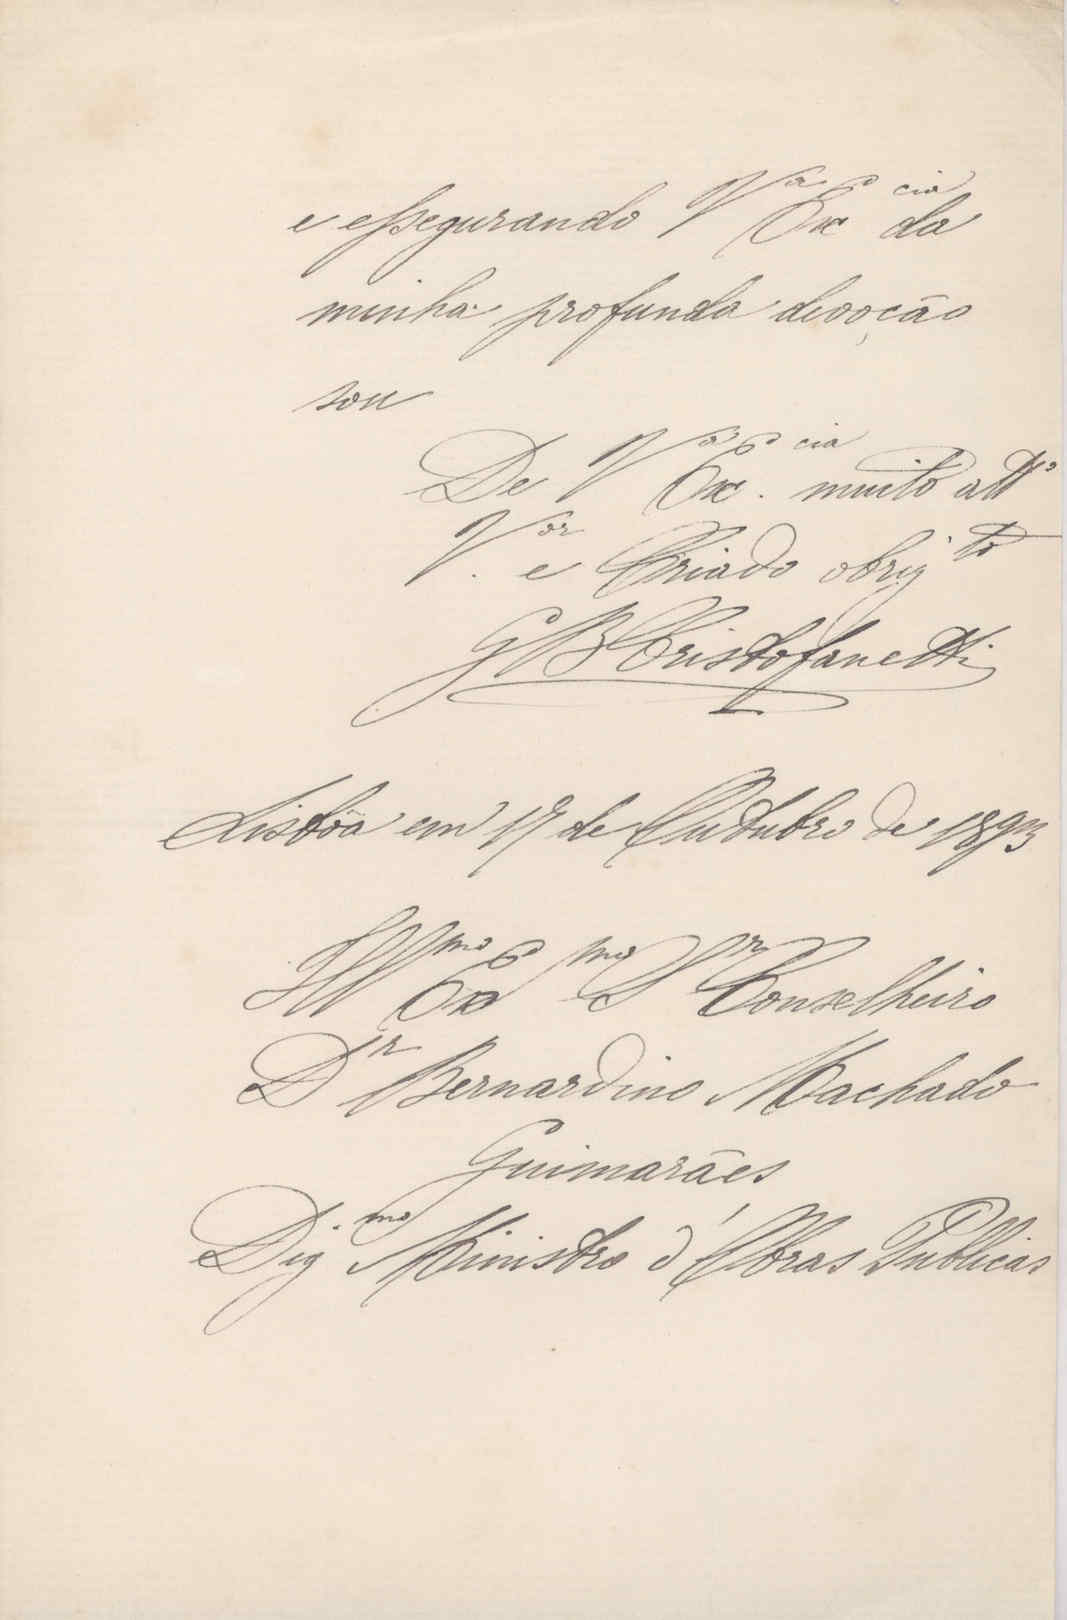 e essegurando Vª Excia da
minha profunda devoção
sou
De Vª Excia. muito attº
Vor. e Criado obrigto
G B Cristofanetti
Lisbôa em 17 de Outubro de 1893
Illmo Exmo Sr Conselheiro
Dr Bernardino Machado
Guimarães
Dig.mo Ministro d'Obras Publicas